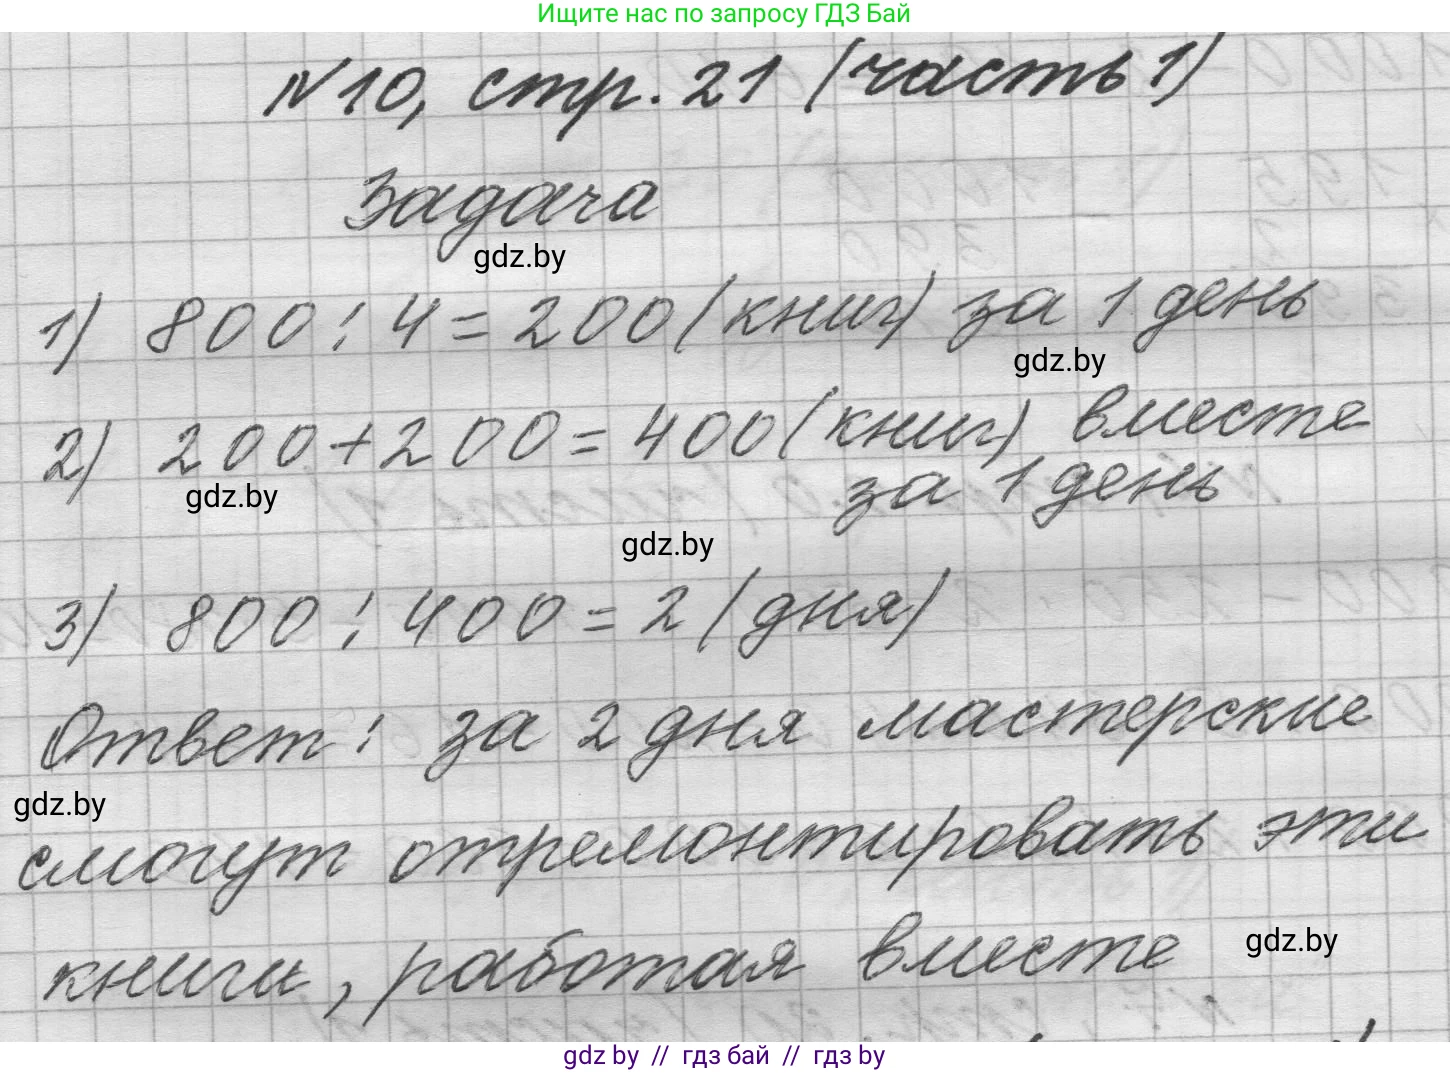 Ищите нас по запросу ГДЗ Бай
№10, стр. 21 (часть 1)
Задача
gdz.by
1) 800 : 4 = 200 (книг) за 1 день
gdz.by
2) 200 + 200 = 400 (книг) вместе
за 1 день
gdz.by
gdz.by
3) 800 : 400 = 2 (дня)
Ответ: за 2 дня мастерские
gdz.by
смогут отремонтировать эти
книги, работая вместе
gdz.by
gdz.by // гдз бай // гдз by